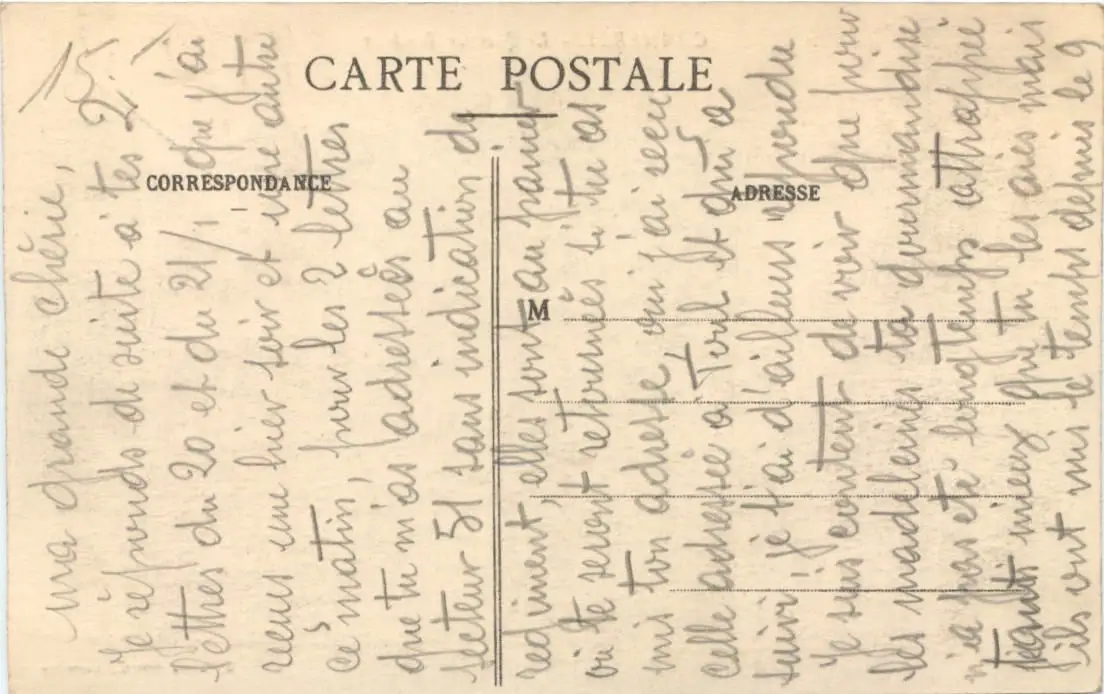 CARTE POSTALE
CORRESPONDANCE
ADRESSE
M
15
Ma grande chérie,
Je réponds de suite à tes 2
lettres du 20 et du 21/1 que j'ai
recues une hier soir et une autre
ce matin, pour les 2 lettres
que tu m'as adressées au
secteur 51 sans indication de
regiment, elles sont au panier
ou te seront retournées si tu as
mis ton adresse, oui j'ai recu
celle adressée à Toul et qui a
suivi je t'ai d'ailleurs répondu
Je suis content de voir que pour
les madeleines ta gourmandise
n'a pas été longtemps attrapée
tant mieux que tu les aies mais
ils ont mis le temps depuis le 9